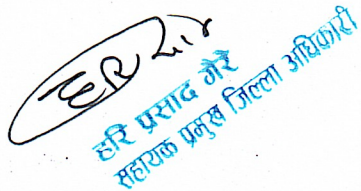 हरि प्रसाद गैरे
सहायक प्रमुख जिल्ला अधिकारी